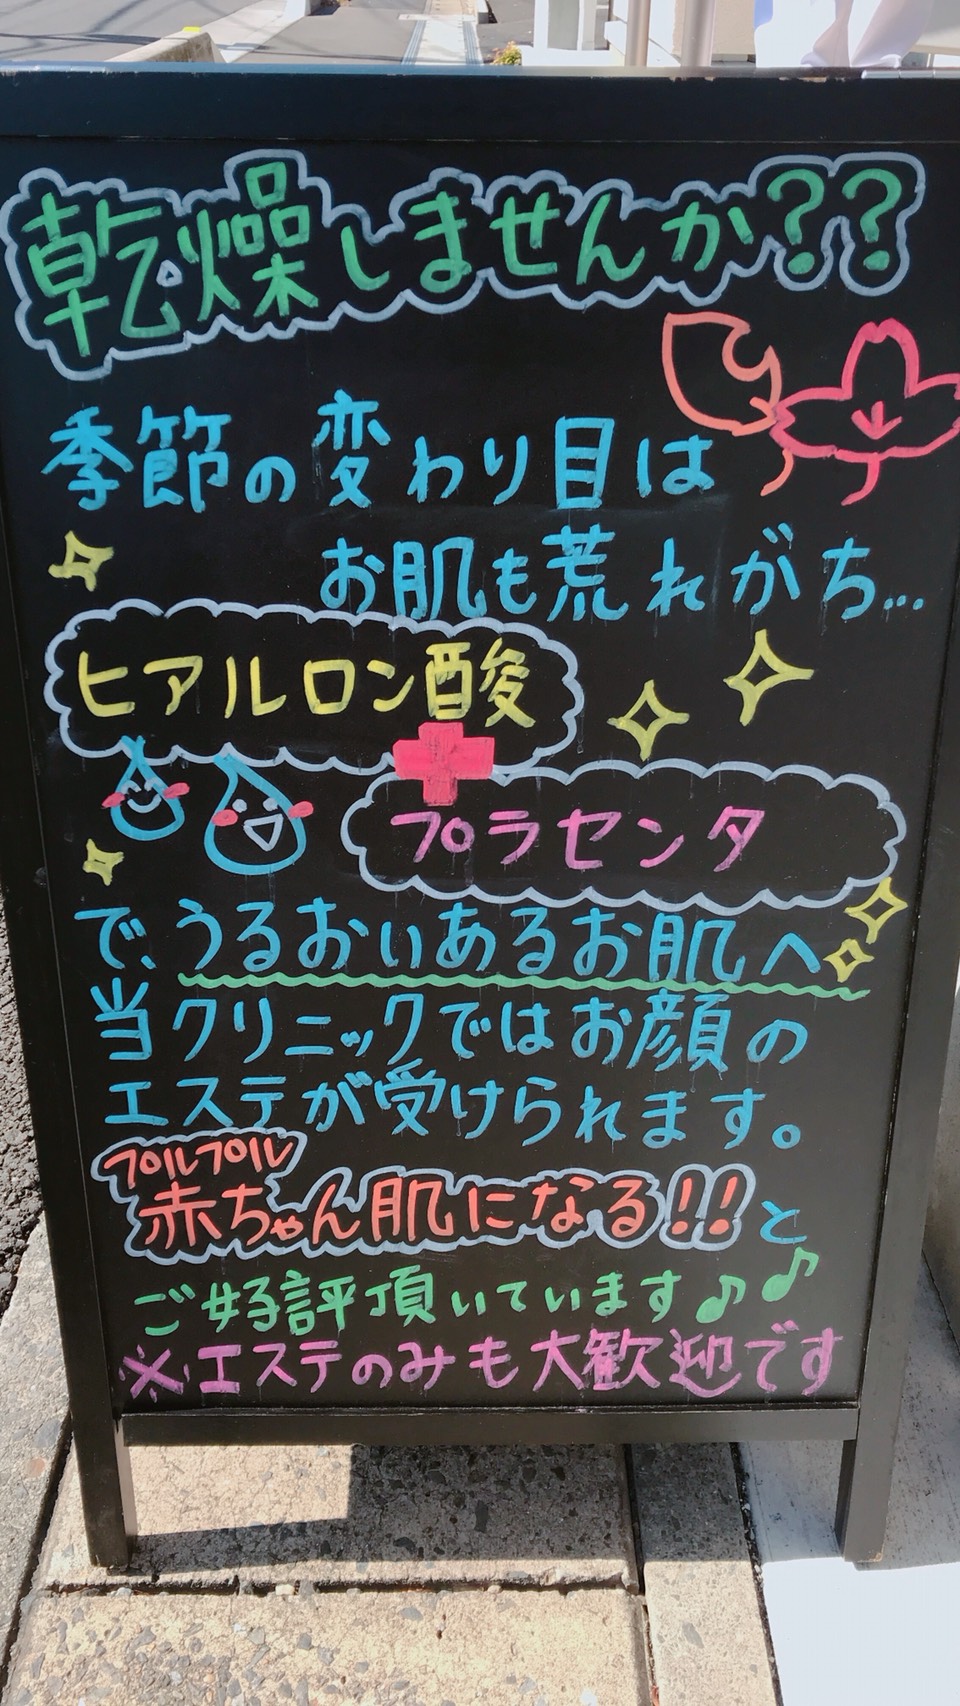 乾燥しませんか??
季節の変わり目は
お肌も荒れがち...
ヒアルロン酸
プラセンタ
で、うるおいあるお肌へ
当クリニックではお顔の
エステが受けられます。
プルプル
赤ちゃん肌になる!!と
ご好評頂いています♪♪
※エステのみも大歓迎です